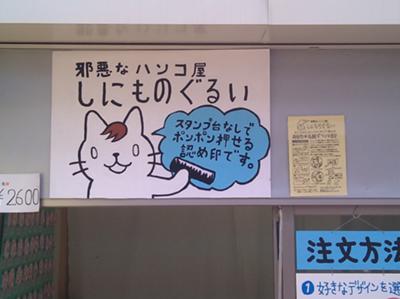 邪悪なハンコ屋
しにものぐるい
スタンプ台なしで
ポンポン押せる
認め印です。
¥2600
注文方法
❶好きなデザインを選